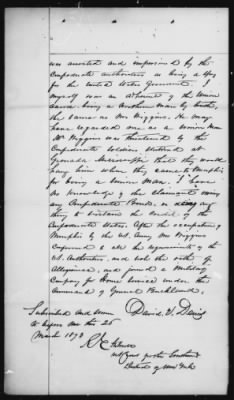 was arrested and imprisoned by the
Confederate authorities as being a spy
for the United States Government. I
myself was an adherent of the Union
cause being a Northern Man by birth,
the same as Mr Higgins. He may
have regarded me as a Union Man
Mr Higgins was threatened by the
Confederate Soldiers stationed at
Grenada Mississippi that they would
hang him when they came to Memphis
for being a Union Man. I have
no knowledge of the claimant owning
any Confederate Bonds or doing any
thing to sustain the credit of the
Confederate States. After the occupation of
Memphis by the U.S. Army Mr Higgins
conformed to all the requirements of the
U.S. Authorities, and took the oath of
Allegiance, and joined a Military
Company for home service under the
command of General Buckland.
Subscribed and sworn
to before me this 25
March 1873
David T. Davis